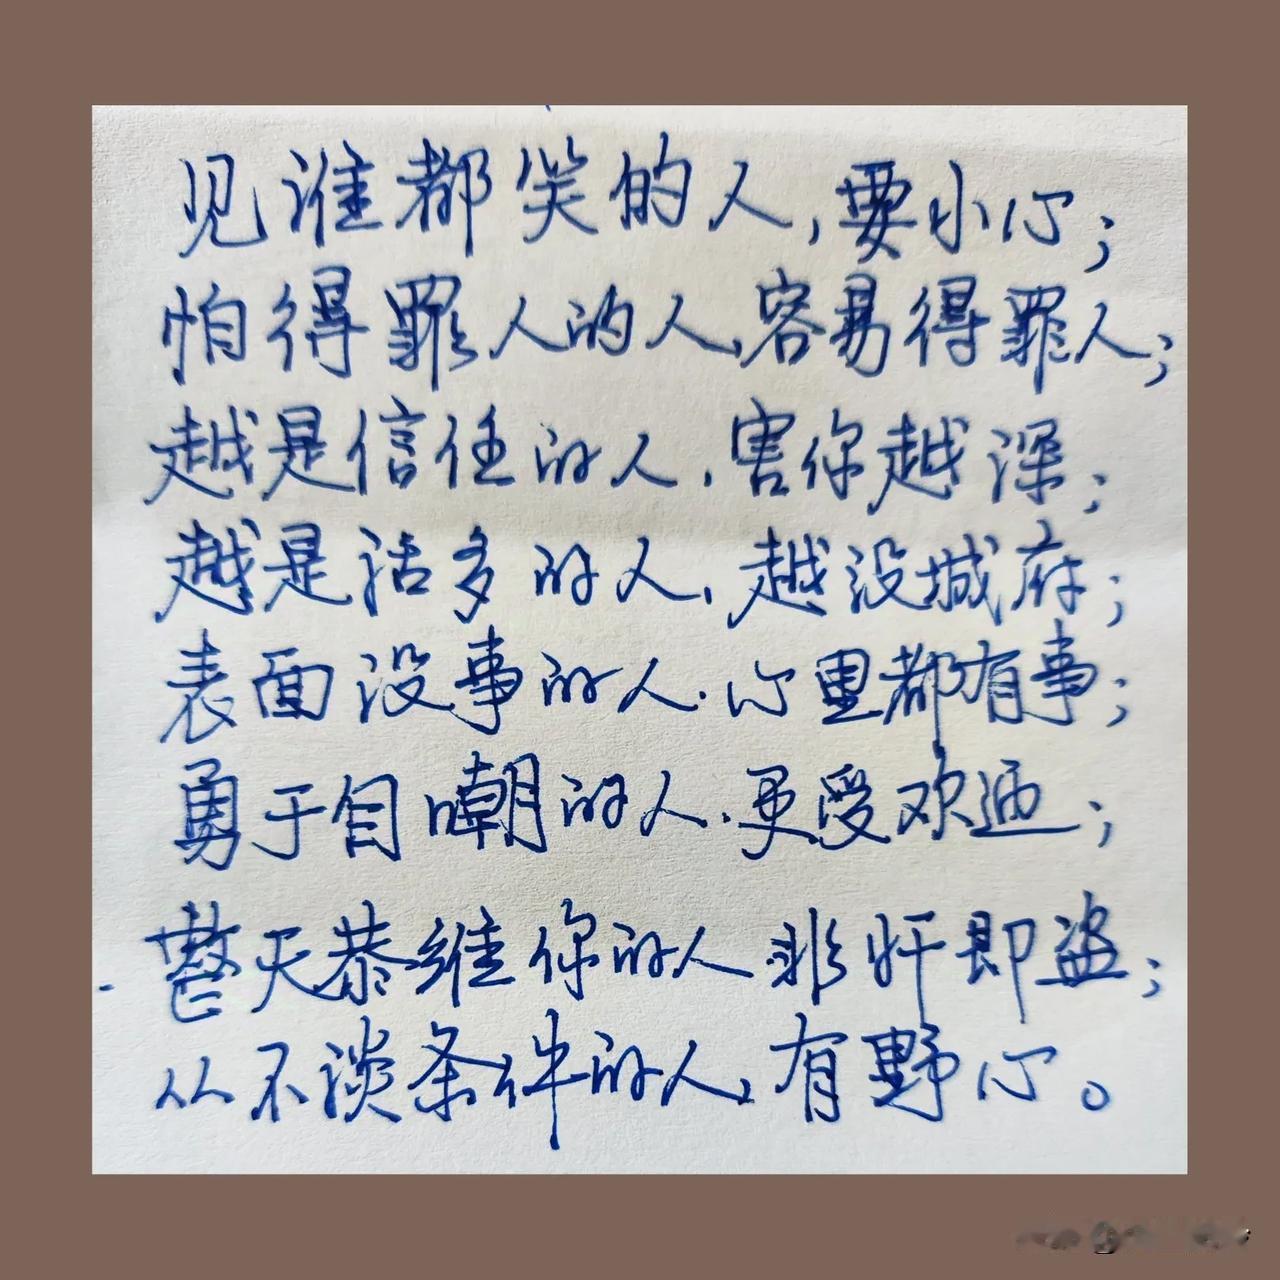 见谁都笑的人，要小心；
怕得罪人的人，容易得罪人；
越是信任的人，害你越深；
越是话多的人，越没城府；
表面没事的人，心里都有事；
勇于自嘲的人，更受欢迎；
整天恭维你的人 非奸即盗；
从不谈条件的人，有野心。